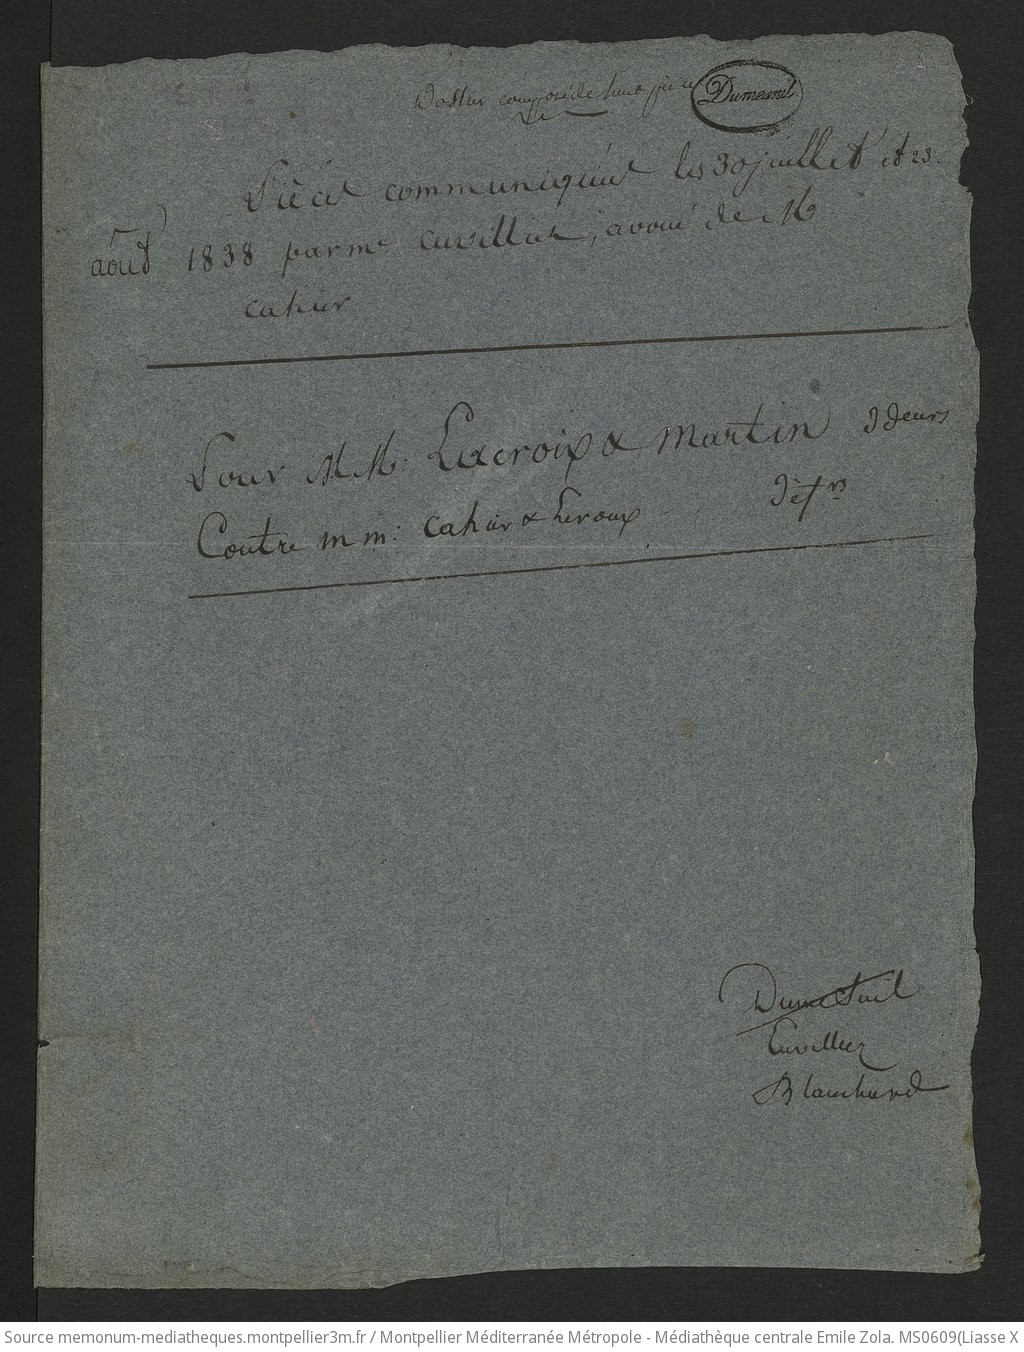 Dossier composé de huit pièces
Dumesnil
Pièces communiquées les 30 juillet et 23
août 1838 par me Cuvillier, avoué de M
Cahier
Pour MM. Lacroix & Martin ddeurs
Contre mm: Cahier & Leroux défrs
Dumesnil
Cuvillier
Blanchard
Source memonum-mediatheques.montpellier3m.fr / Montpellier Méditerranée Métropole - Médiathèque centrale Emile Zola. MS0609(Liasse X